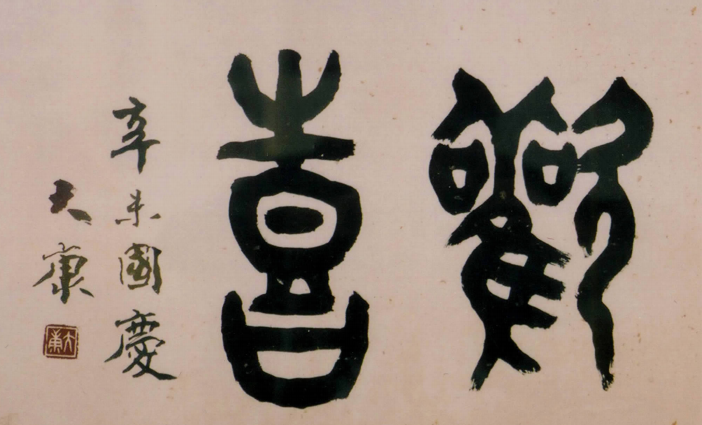 歡喜
辛未國慶
大康
大康